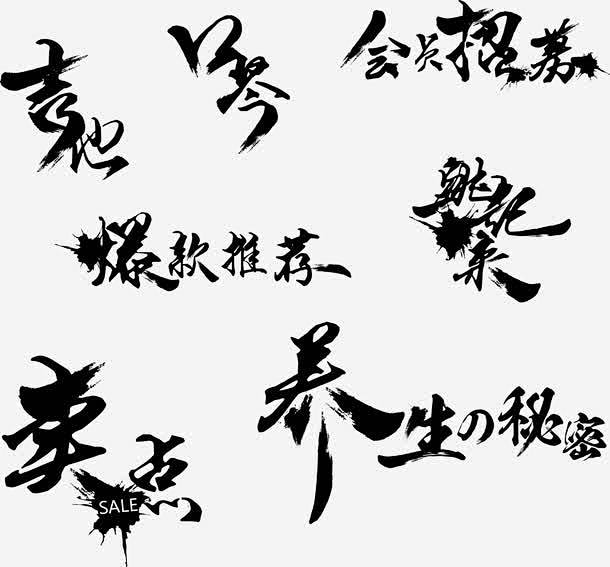 吉他
口琴
会员招募
爆款推荐
养生の秘密
卖点
SALE